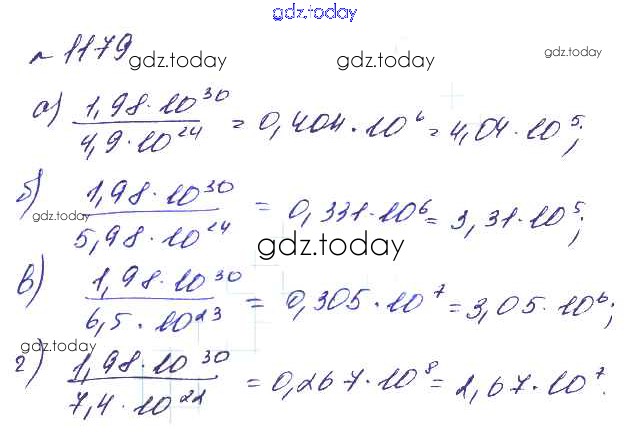 gdz.today
№ 1179
gdz.today gdz.today gdz.today
а) 1,98·10^30 / 4,9·10^24 = 0,404·10^6 = 4,04·10^5;
б) 1,98·10^30 / 5,98·10^24 = 0,331·10^6 = 3,31·10^5;
gdz.today
gdz.today
в) 1,98·10^30 / 6,5·10^23 = 0,305·10^7 = 3,05·10^6;
gdz.today
г) 1,98·10^30 / 7,4·10^22 = 0,267·10^8 = 2,67·10^7.